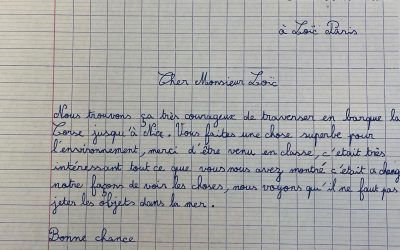 à Loïc Paris
Cher Monsieur Loïc
Nous trouvons ça très courageux de traverser en barque la
Corse jusqu'à Nice. Vous faites une chose superbe pour
l'environnement, merci d'être venu en classe, c'etait très
intéressant tout ce que vous nous avez montré c'était a changé
notre façons de voir les choses, nous voyons qu'il ne faut pas
jeter les objets dans la mer.
Bonne chance